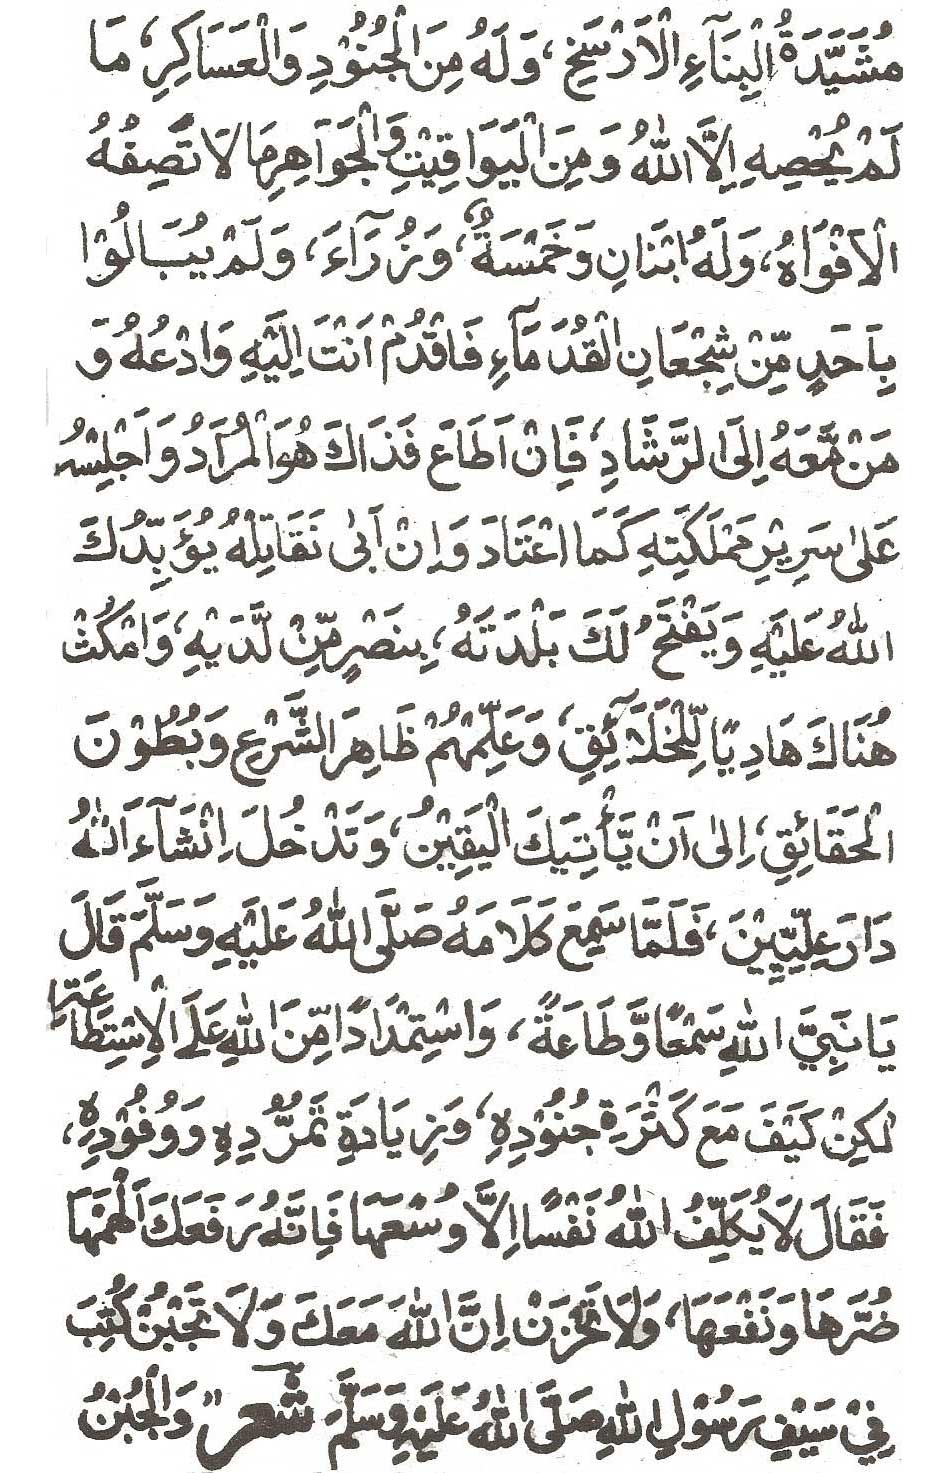 مُشَيَّدَةُ الْبِنَآءِ الْاَرْسَخِ، وَلَهُ مِنَ الْجُنُوْدِ وَالْعَسَاكِرِ، مَا
لَمْ يُحْصِهِ اِلَّا اللهُ وَمِنَ الْيَوَاقِيْتِ وَالْجَوَاهِرِ مَا لَا تَصِفُهُ
الْاَفْوَاهُ، وَلَهُ ابْنَانِ وَخَمْسَةُ، وُزَرَآءَ، وَلَمْ يُبَالُوْا
بِاَحَدٍ مِّنْ شِجْعَانِ الْقُدَمَآءِ فَاقْدُمْ اَنْتَ اِلَيْهِ وَادْعُهُ وَ
مَنْ مَّعَهُ اِلَى الرَّشَادِ، فَاِنْ اَطَاعَ فَذَاكَ هُوَ الْمُرَادُ وَاَجْلِسْهُ
عَلٰى سَرِيْرِ مَمْلَكَتِهِ كَمَا اعْتَادَ وَاِنْ اَبٰى نَقَاتِلْهُ يُؤَيِّدُكَ
اللهُ عَلَيْهِ وَيَفْتَحُ لَكَ بَلْدَتَهُ، بِنَصْرٍ مِّنْ لَّدَيْهِ، وَامْكُثْ
هُنَاكَ هَادِيًا لِّلْخَلَآئِقِ، وَعَلِّمْهُمْ ظَاهِرَ الشَّرْعِ وَبُطُوْنَ
الْحَقَائِقِ، اِلٰى اَنْ يَّأْتِيَكَ الْيَقِيْنُ، وَتَدْخُلَ اِنْشَآءَ اللهُ
دَارَ عِلِّيِّيْنَ، فَلَمَّا سَمِعَ كَلَامَهُ صَلَّى اللهُ عَلَيْهِ وَسَلَّمَ قَالَ
يَا نَبِيَّ اللهِ سَمْعًا وَّطَاعَةً، وَاسْتِمْدَادًا مِّنَ اللهِ عَلَى الْاِسْتِطَاعَةِ
لٰكِنْ كَيْفَ مَعَ كَثْرَةِ جُنُوْدِهِ، وَزِيَادَةِ تَمَرُّدِهِ وَوُفُوْدِهِ،
فَقَالَ لَا يُكَلِّفُ اللهُ نَفْسًا اِلَّا وُسْعَهَا فَاِنَّهُ رَفَعَكَ اَلْهَمَهَا
ضُرَّهَا وَنَفْعَهَا، وَلَا تَحْزَنْ اِنَّ اللهَ مَعَكَ وَلَا تَجْبُنْ كُتِبَ
فِيْ سَيْفِ رَسُوْلِ اللهِ صَلَّى اللهُ عَلَيْهِ وَسَلَّمَ شعر" وَالْجُبْنُ